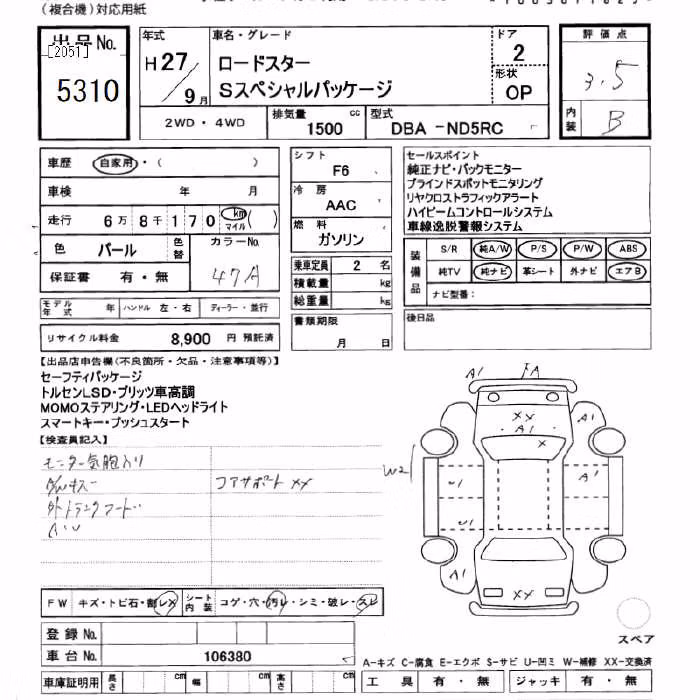 (複合機)対応用紙
出品No.
[2051]
5310
年式
H27/9月
車名・グレード
ロードスター
Sスペシャルパッケージ
ドア
2
形状
OP
評価点
3.5
内装
B
2WD・4WD
排気量
1500 cc
型式
DBA -ND5RC
車歴 自家用・( )
車検 年 月
走行 6万8千170 km マイル ( )
色 パール 色替 カラーNo. 47A
保証書 有・無
モデル年式 年 ハンドル 左・右 ディーラー・並行
リサイクル料金 8,900 円 預託済
シフト
F6
冷房
AAC
燃料
ガソリン
乗車定員 2 名
積載量 kg
総重量 kg
書類期限
月 日
セールスポイント
純正ナビ・バックモニター
ブラインドスポットモニタリング
リヤクロストラフィックアラート
ハイビームコントロールシステム
車線逸脱警報システム
装備品
S/R 純A/W P/S P/W ABS
純TV 純ナビ 革シート 外ナビ エアB
ナビ型番:
後日品
【出品店申告欄(不良箇所・欠品・注意事項等)】
セーフティパッケージ
トルセンLSD・ブリッツ車高調
MOMOステアリング・LEDヘッドライト
スマートキー・プッシュスタート
【検査員記入】
モニター気胞入り
コアサポートXX
A1 FA
XX
A1
X
A1 A1
W2
U1 A1
U1
A1 A1
XX
スペア
FW キズ・トビ石・割レX シート内装 コゲ・穴・汚レ・シミ・破レ・スレ
登録No.
車台No. 106380
車庫証明用 長さ cm 幅 cm 高さ cm
A-キズ C-腐食 E-エクボ S-サビ U-凹ミ W-補修 XX-交換済
工具 有・無 ジャッキ 有・無